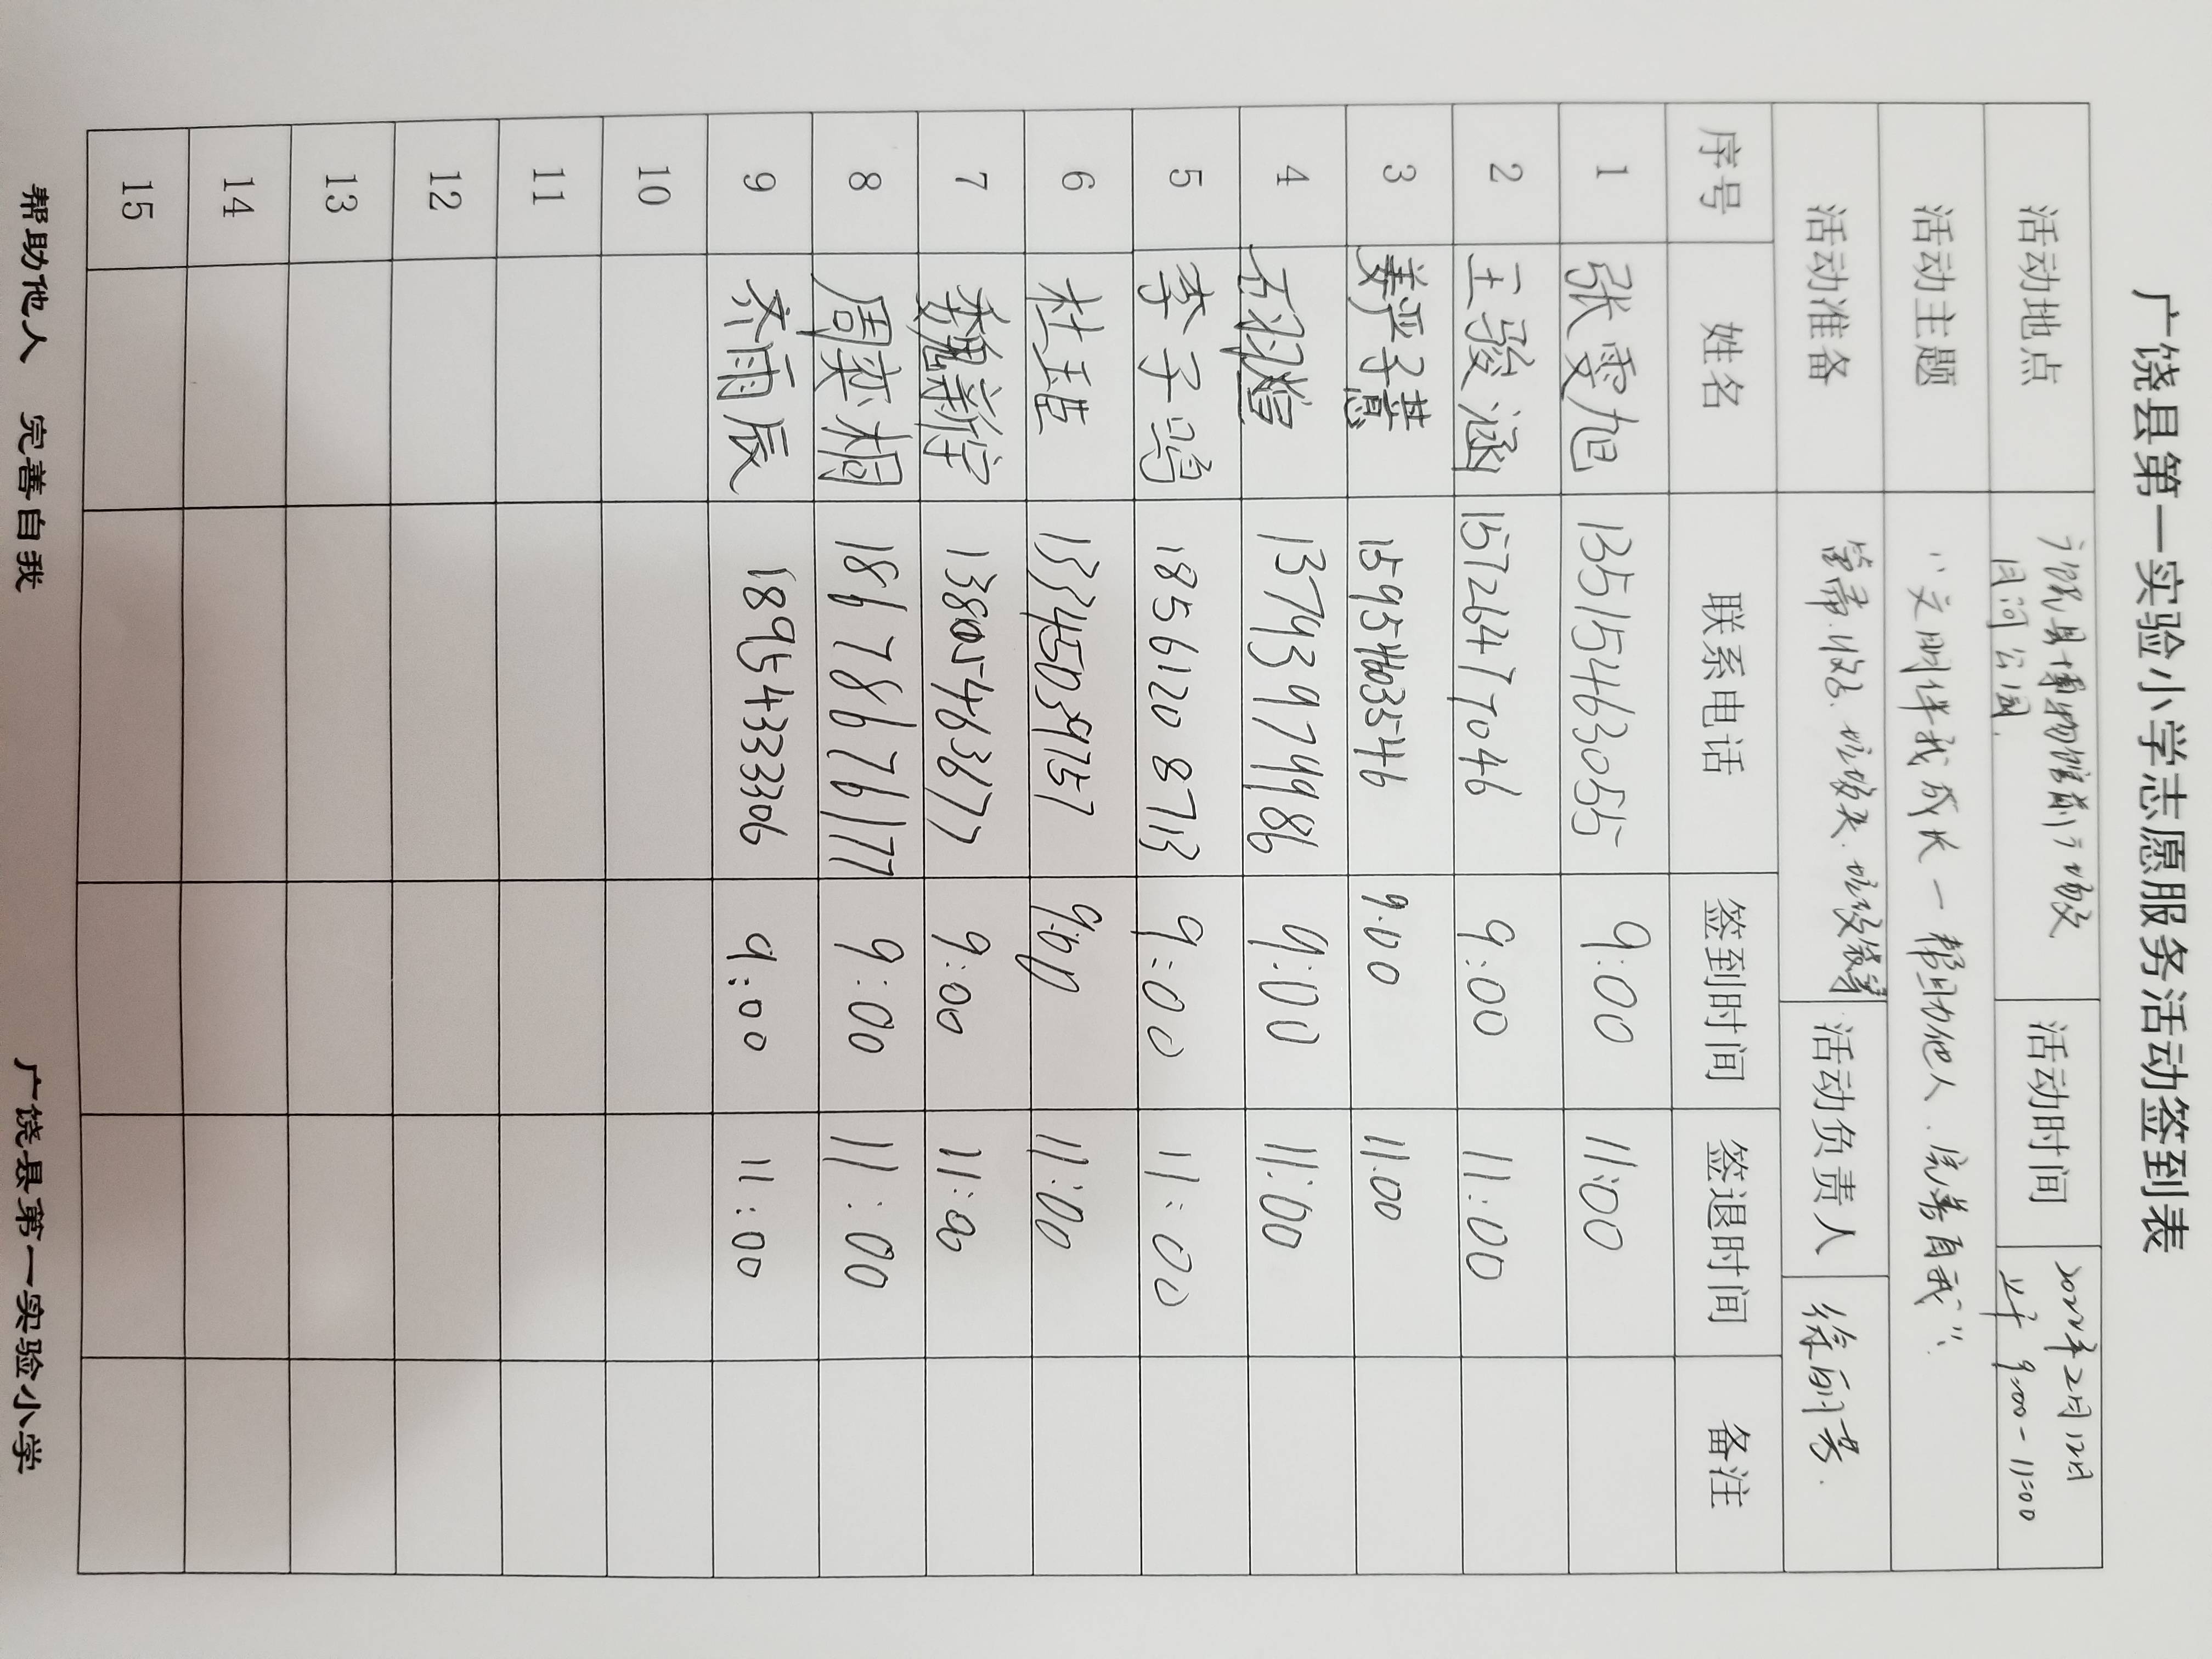 广饶县第一实验小学志愿服务活动签到表
活动地点 广饶县博物馆前广场及 活动时间 2022年2月12日
月河公园. 上午 9:00-11:00
活动主题 “文明伴我成长—帮助他人.完善自我”.
活动准备 笤帚.垃圾夹.垃圾袋等 活动负责人 徐丽芳.
序号 姓名 联系电话 签到时间 签退时间 备注
1 张雯旭 13515463055 9:00 11:00
2 王骏涵 15726477046 9:00 11:00
3 姜严子慧 1595403546 9:00 11:00
4 13793979986 9:00 11:00
5 李子鸣 18561208713 9:00 11:00
6 杜玉喆 9:00 11:00
7 魏新宇 13805463677 9:00 11:00
8 周奕桐 18678676177 9:00 11:00
9 齐雨辰 18954333306 9:00 11:00
10
11
12
13
14
15
帮助他人 完善自我 广饶县第一实验小学